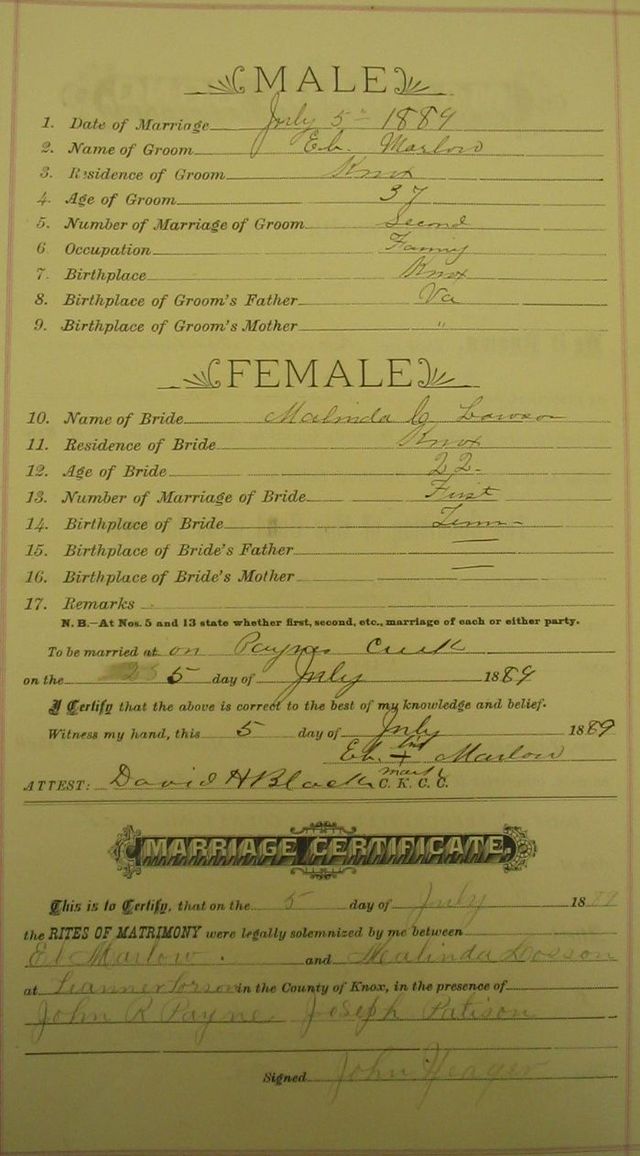 MALE
1. Date of Marriage July 5" 1889
2. Name of Groom Eb. Marlow
3. Residence of Groom Knox
4. Age of Groom 37
5. Number of Marriage of Groom Second
6 Occupation
7. Birthplace Knox
8. Birthplace of Groom's Father Va
9. Birthplace of Groom's Mother "
FEMALE
10. Name of Bride Malinda C Lawson
11. Residence of Bride Knox
12. Age of Bride 22
13. Number of Marriage of Bride First
14. Birthplace of Bride Tenn
15. Birthplace of Bride's Father —
16. Birthplace of Bride's Mother —
17. Remarks
N. B.—At Nos. 5 and 13 state whether first, second, etc., marriage of each or either party.
To be married at on Paynes Creek
on the 5 day of July 1889
I Certify that the above is correct to the best of my knowledge and belief.
Witness my hand, this 5 day of July 1889
Eb. his + Marlow
mark
ATTEST: David H Black C. K. C. C.
MARRIAGE CERTIFICATE.
This is to Certify, that on the 5 day of July 1889
the RITES OF MATRIMONY were legally solemnized by me between
Eb Marlow. and Malinda Losson
at in the County of Knox, in the presence of
John R Payne Joseph Patison
Signed John